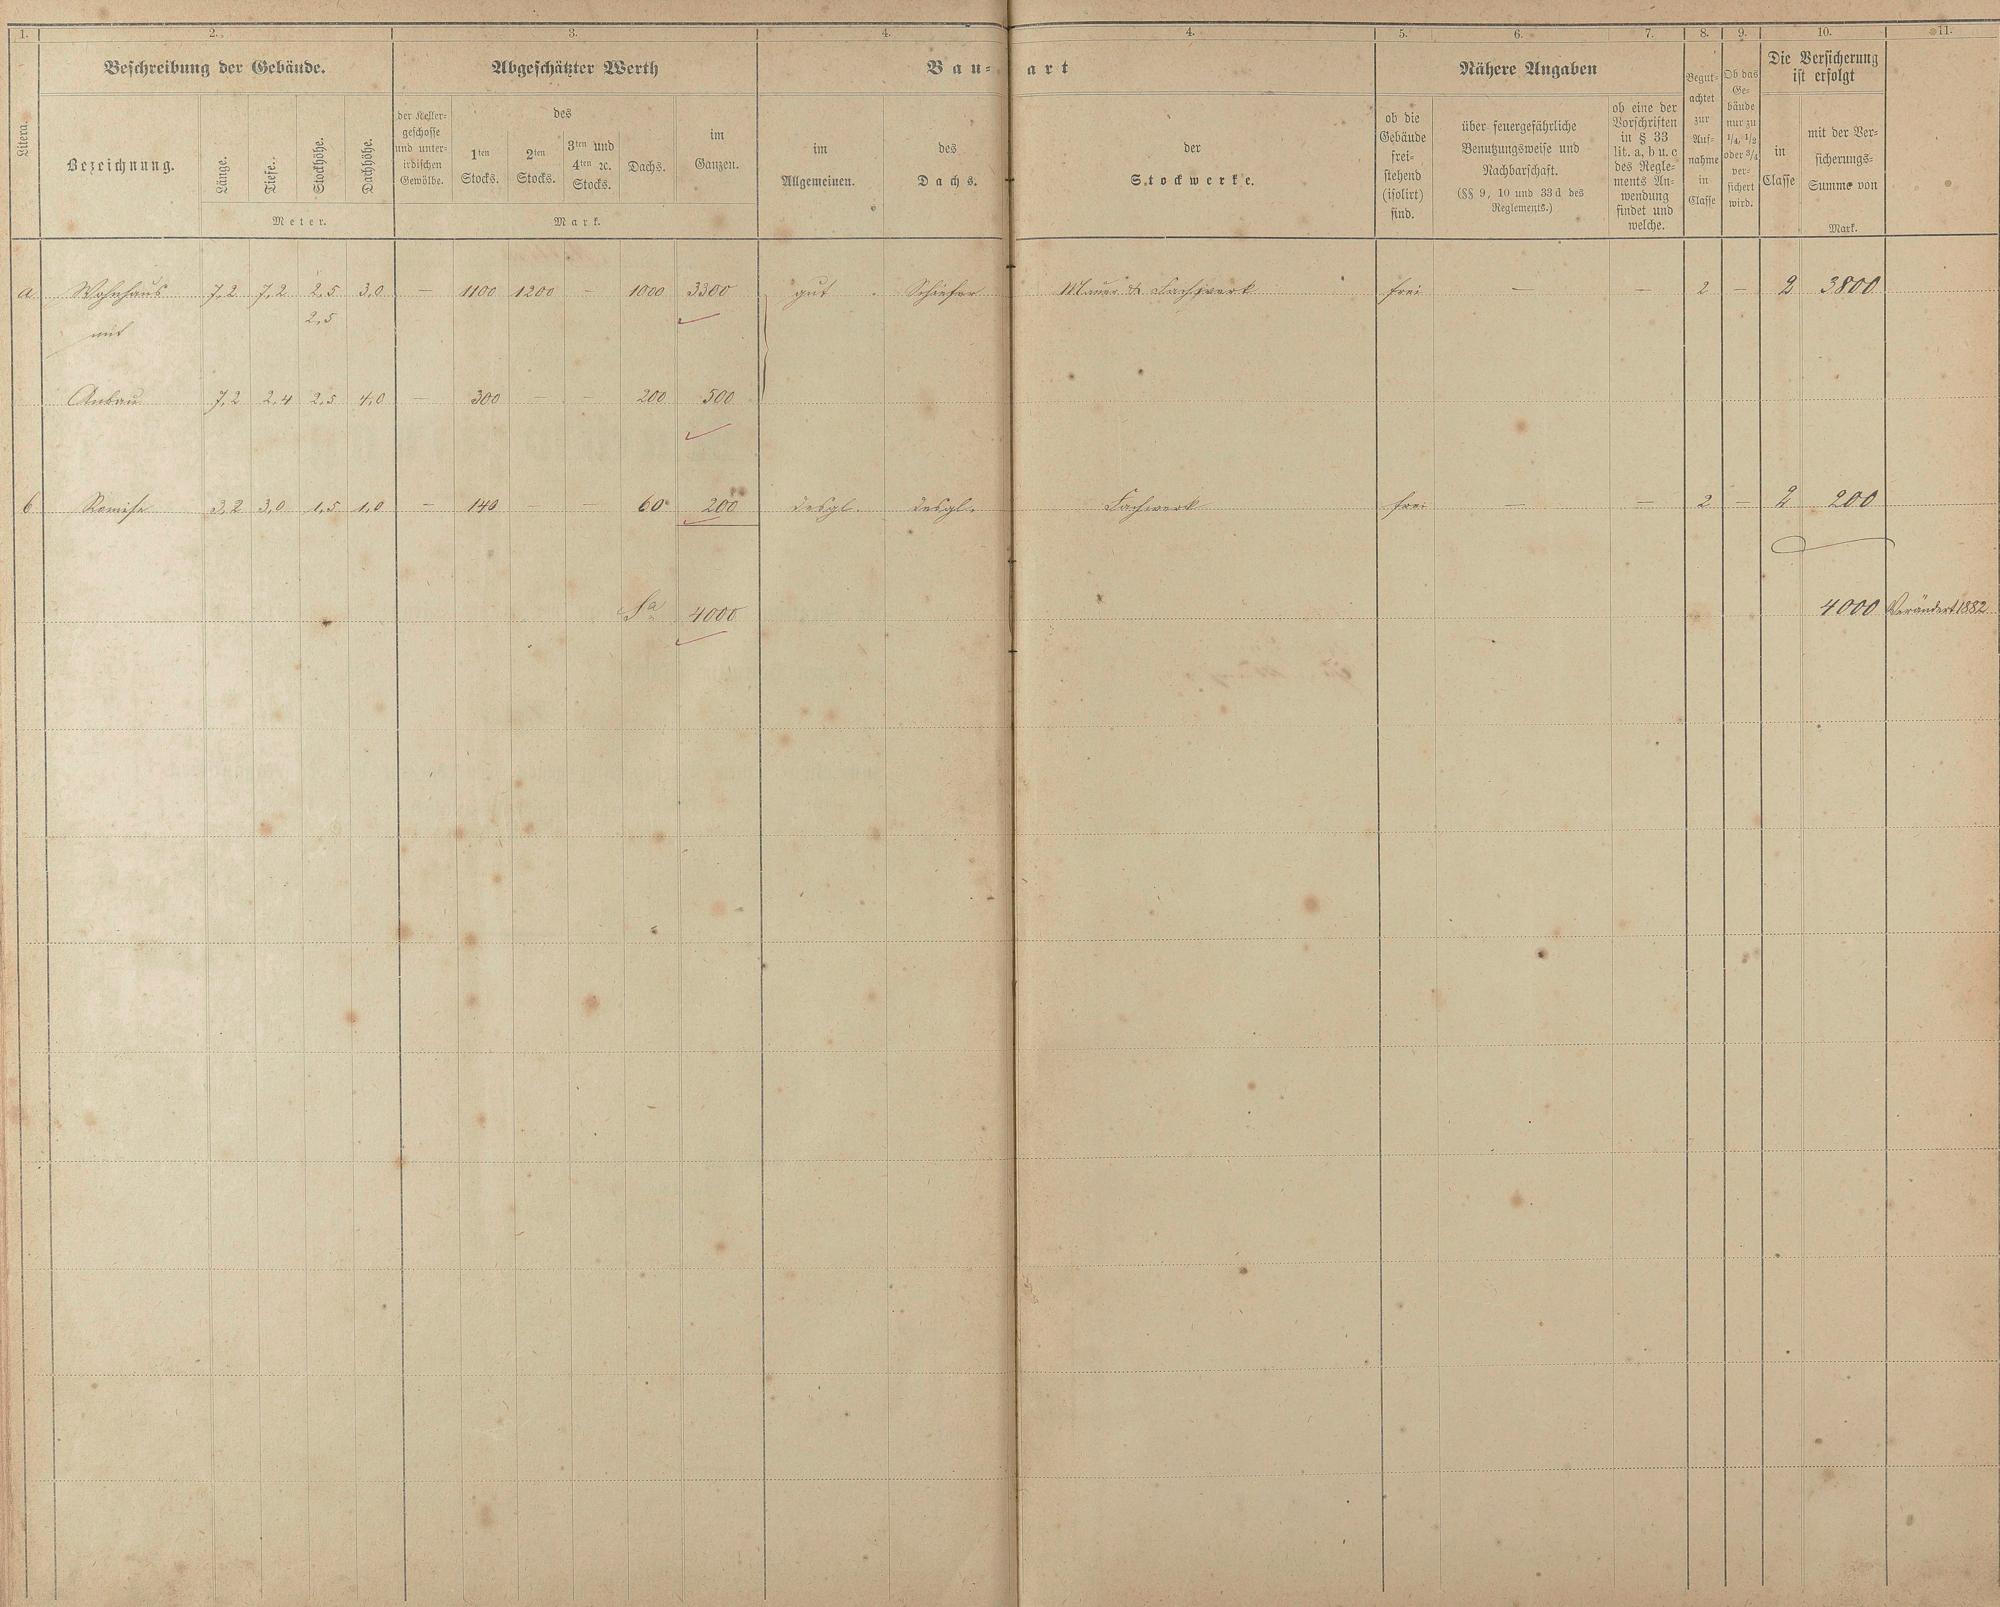 1. 2. 3. 4. 4. 5. 6. 7. 8. 9. 10. 11.
Litera.
Beschreibung der Gebäude.
Bezeichnung.
Länge.
Tiefe.
Stockhöhe.
Dachhöhe.
Meter.
Abgeschätzter Werth
der Keller-
geschosse
und unter-
irdischen
Gewölbe.
des
1ten
Stocks.
2ten
Stocks.
3ten und
4ten ꝛc.
Stocks.
Dachs.
im
Ganzen.
Mark.
Bau- art
im
Allgemeinen.
des
Dachs.
der
Stockwerke.
Nähere Angaben
ob die
Gebäude
frei-
stehend
(isolirt)
sind.
über feuergefährliche
Benutzungsweise und
Nachbarschaft.
(§§ 9, 10 und 33 d des
Reglements.)
ob eine der
Vorschriften
in § 33
lit. a, b u. c
des Regle-
ments An-
wendung
findet und
welche.
Begut-
achtet
zur
Auf-
nahme
in
Classe
Ob das
Ge-
bäude
nur zu
1/4, 1/2
oder 3/4
ver-
sichert
wird.
Die Versicherung
ist erfolgt
in
Classe
mit der Ver-
sicherungs-
Summe von
Mark.
a Wohnhaus 7,2 7,2 2,5 3,0 — 1100 1200 — 1000 3300 gut Schiefer Mauer & Fachwerk frei — — 2 — 2 3800
mit 2,5
Anbau 7,2 2,4 2,5 4,0 — 300 — — 200 500
b Remise 3,2 3,0 1,5 1,0 — 140 — — 60 200 desgl. desgl. Fachwerk frei — — 2 — 2 200
Sa 4000 4000 Verändert 1882